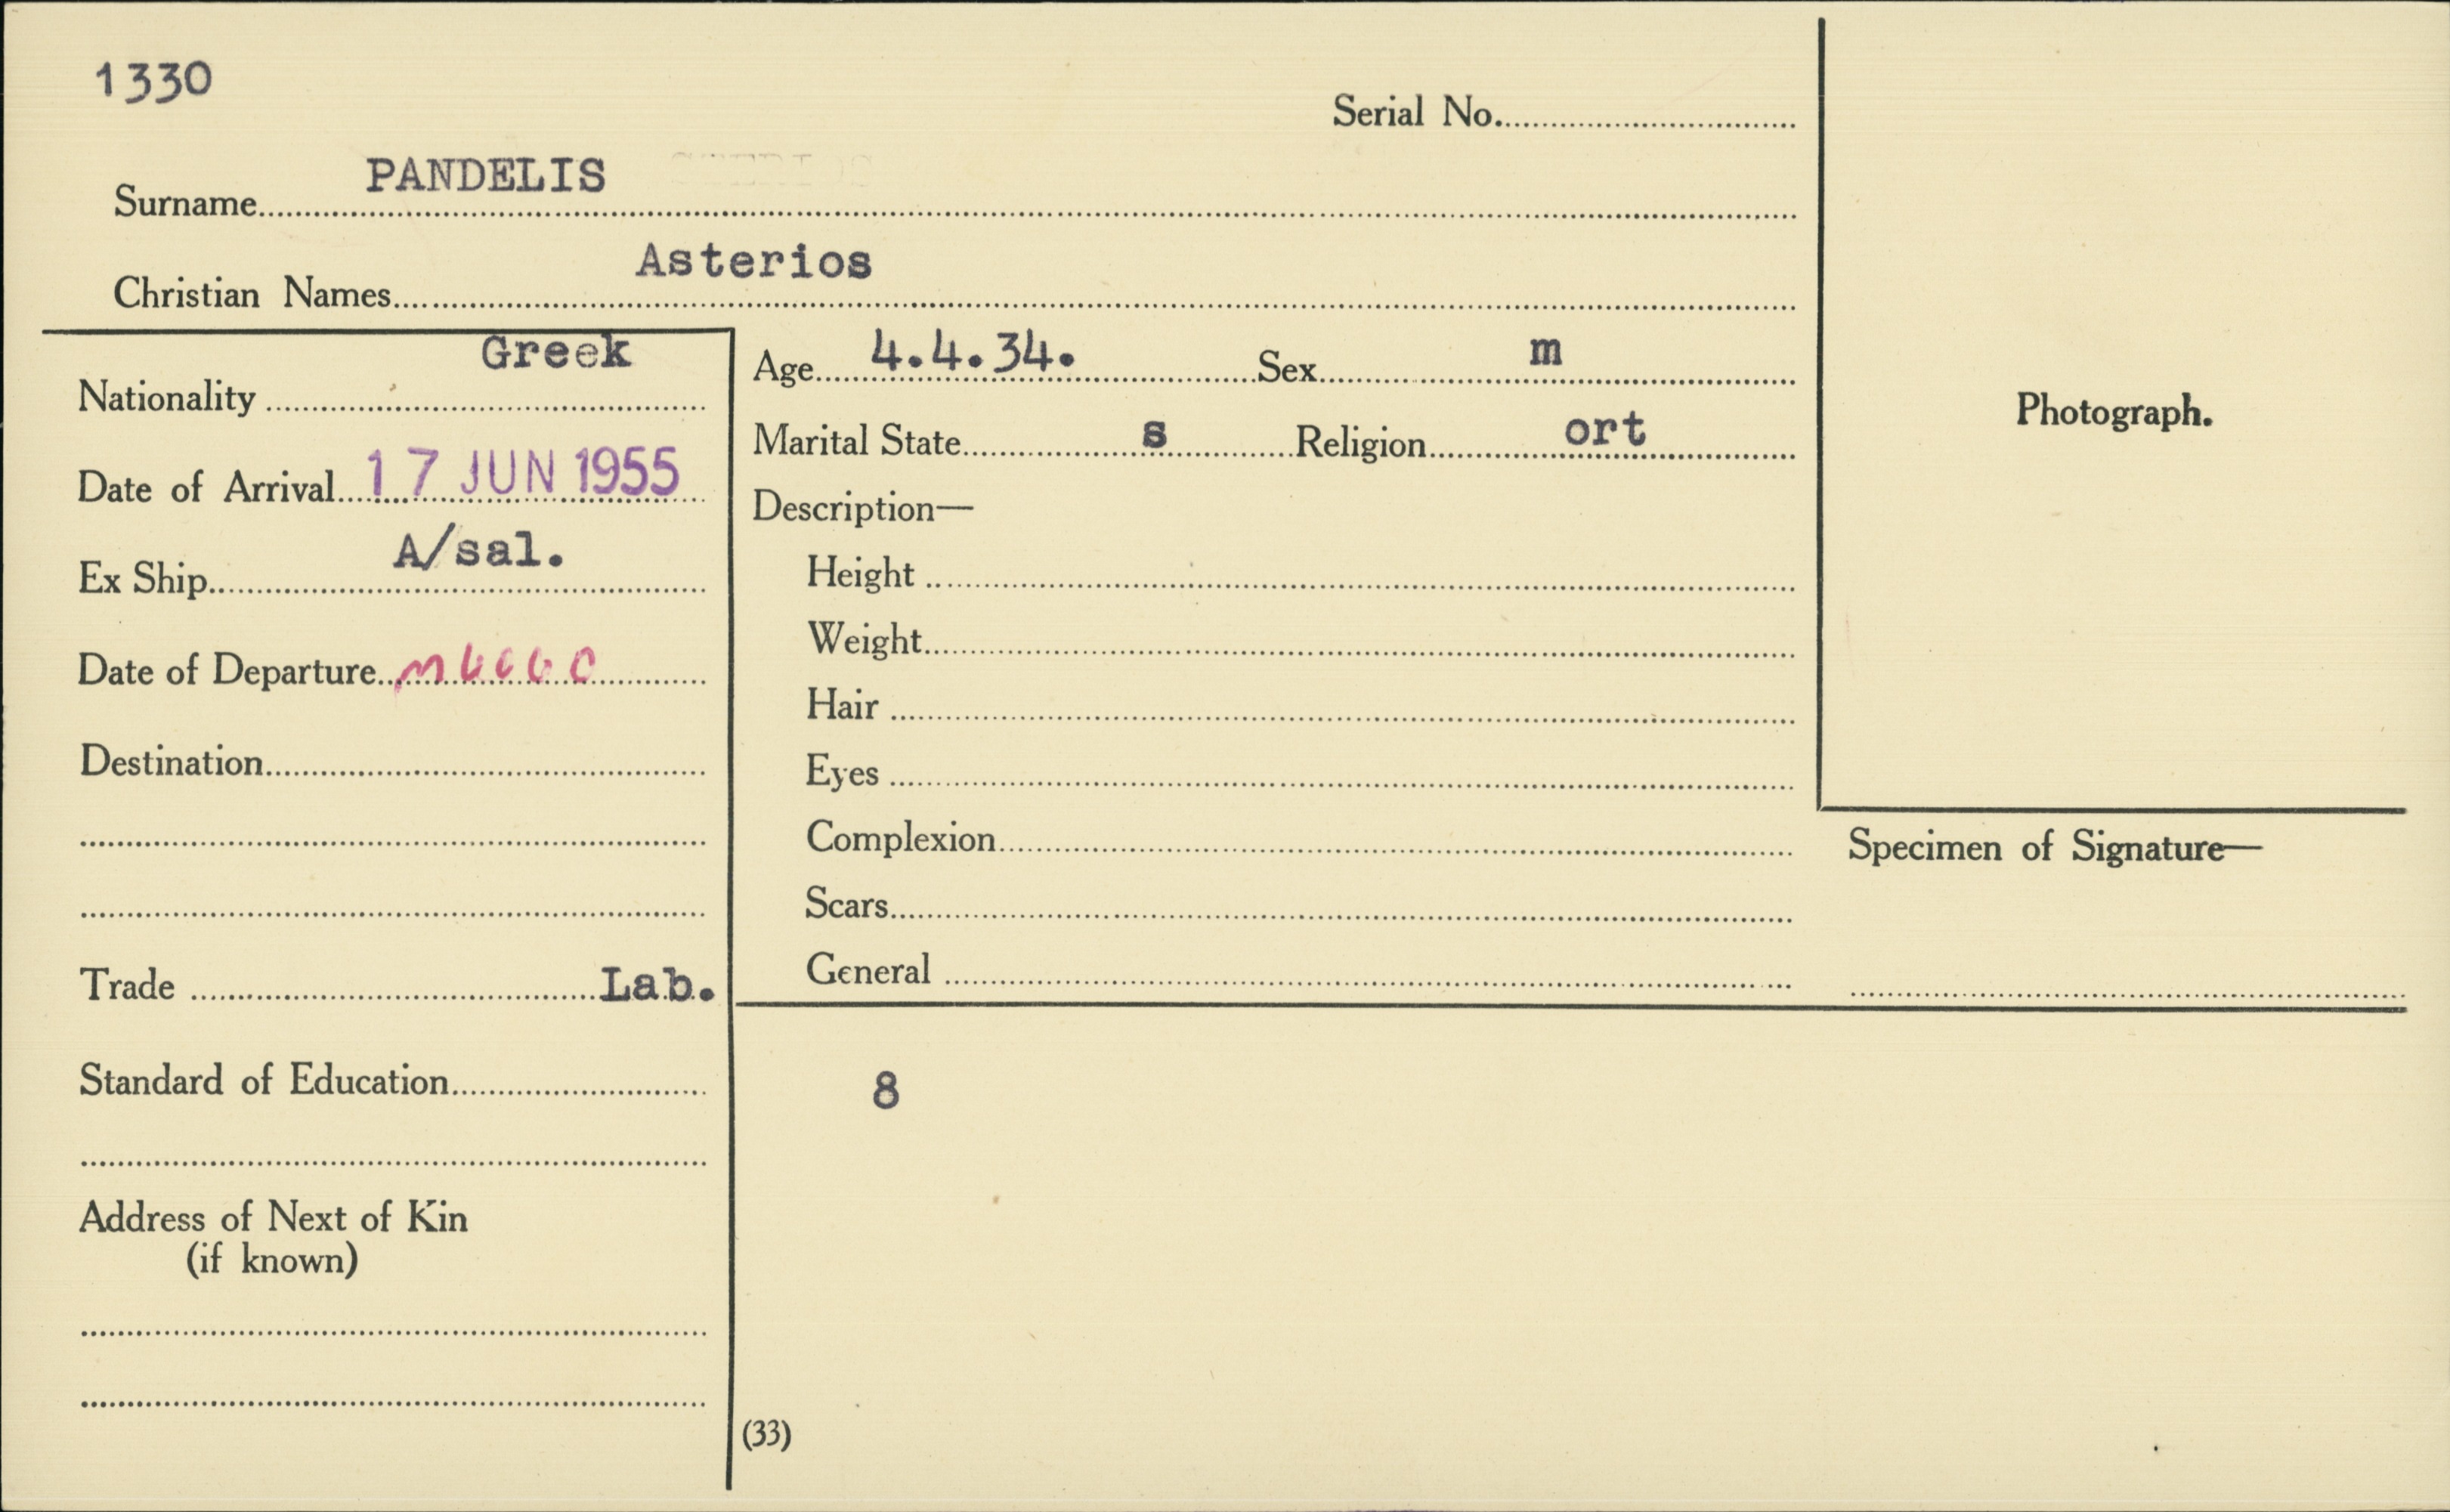 1330
Serial No.
Surname PANDELIS
Christian Names Asterios
Nationality Greek
Date of Arrival 17 JUN 1955
Ex Ship A/sal.
Date of Departure
Destination
Trade Lab.
Standard of Education
Address of Next of Kin
(if known)
Age 4.4.34. Sex m
Marital State s Religion ort
Description—
Height
Weight
Hair
Eyes
Complexion
Scars
General
8
(33)
Photograph.
Specimen of Signature—